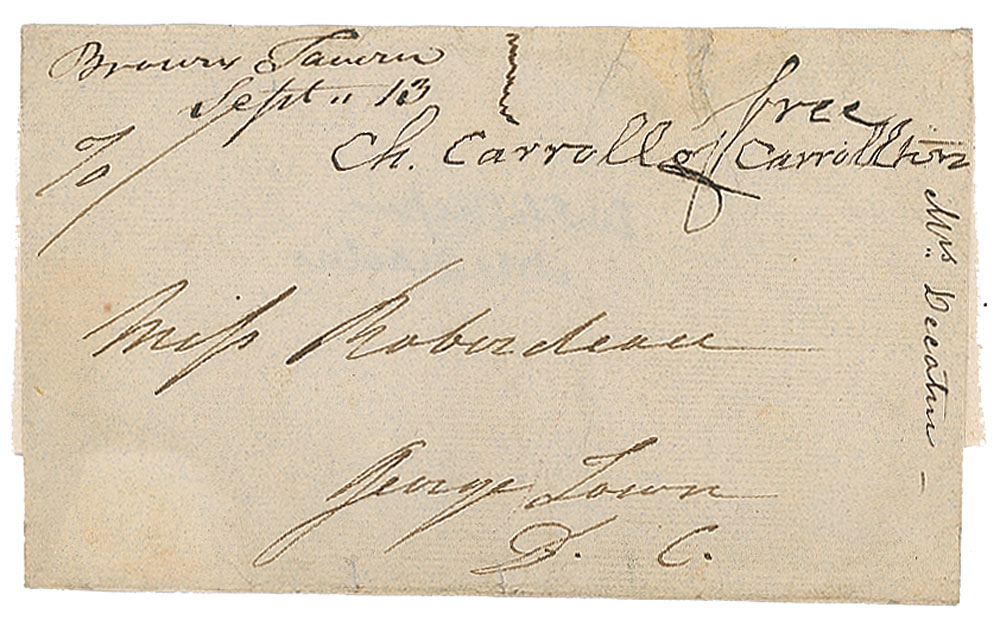 Browns Tavern
Sept. 13
free
Ch. Carroll of Carrollton
To
Miss Roberdeau
George Town
D. C.
Mrs Decatur